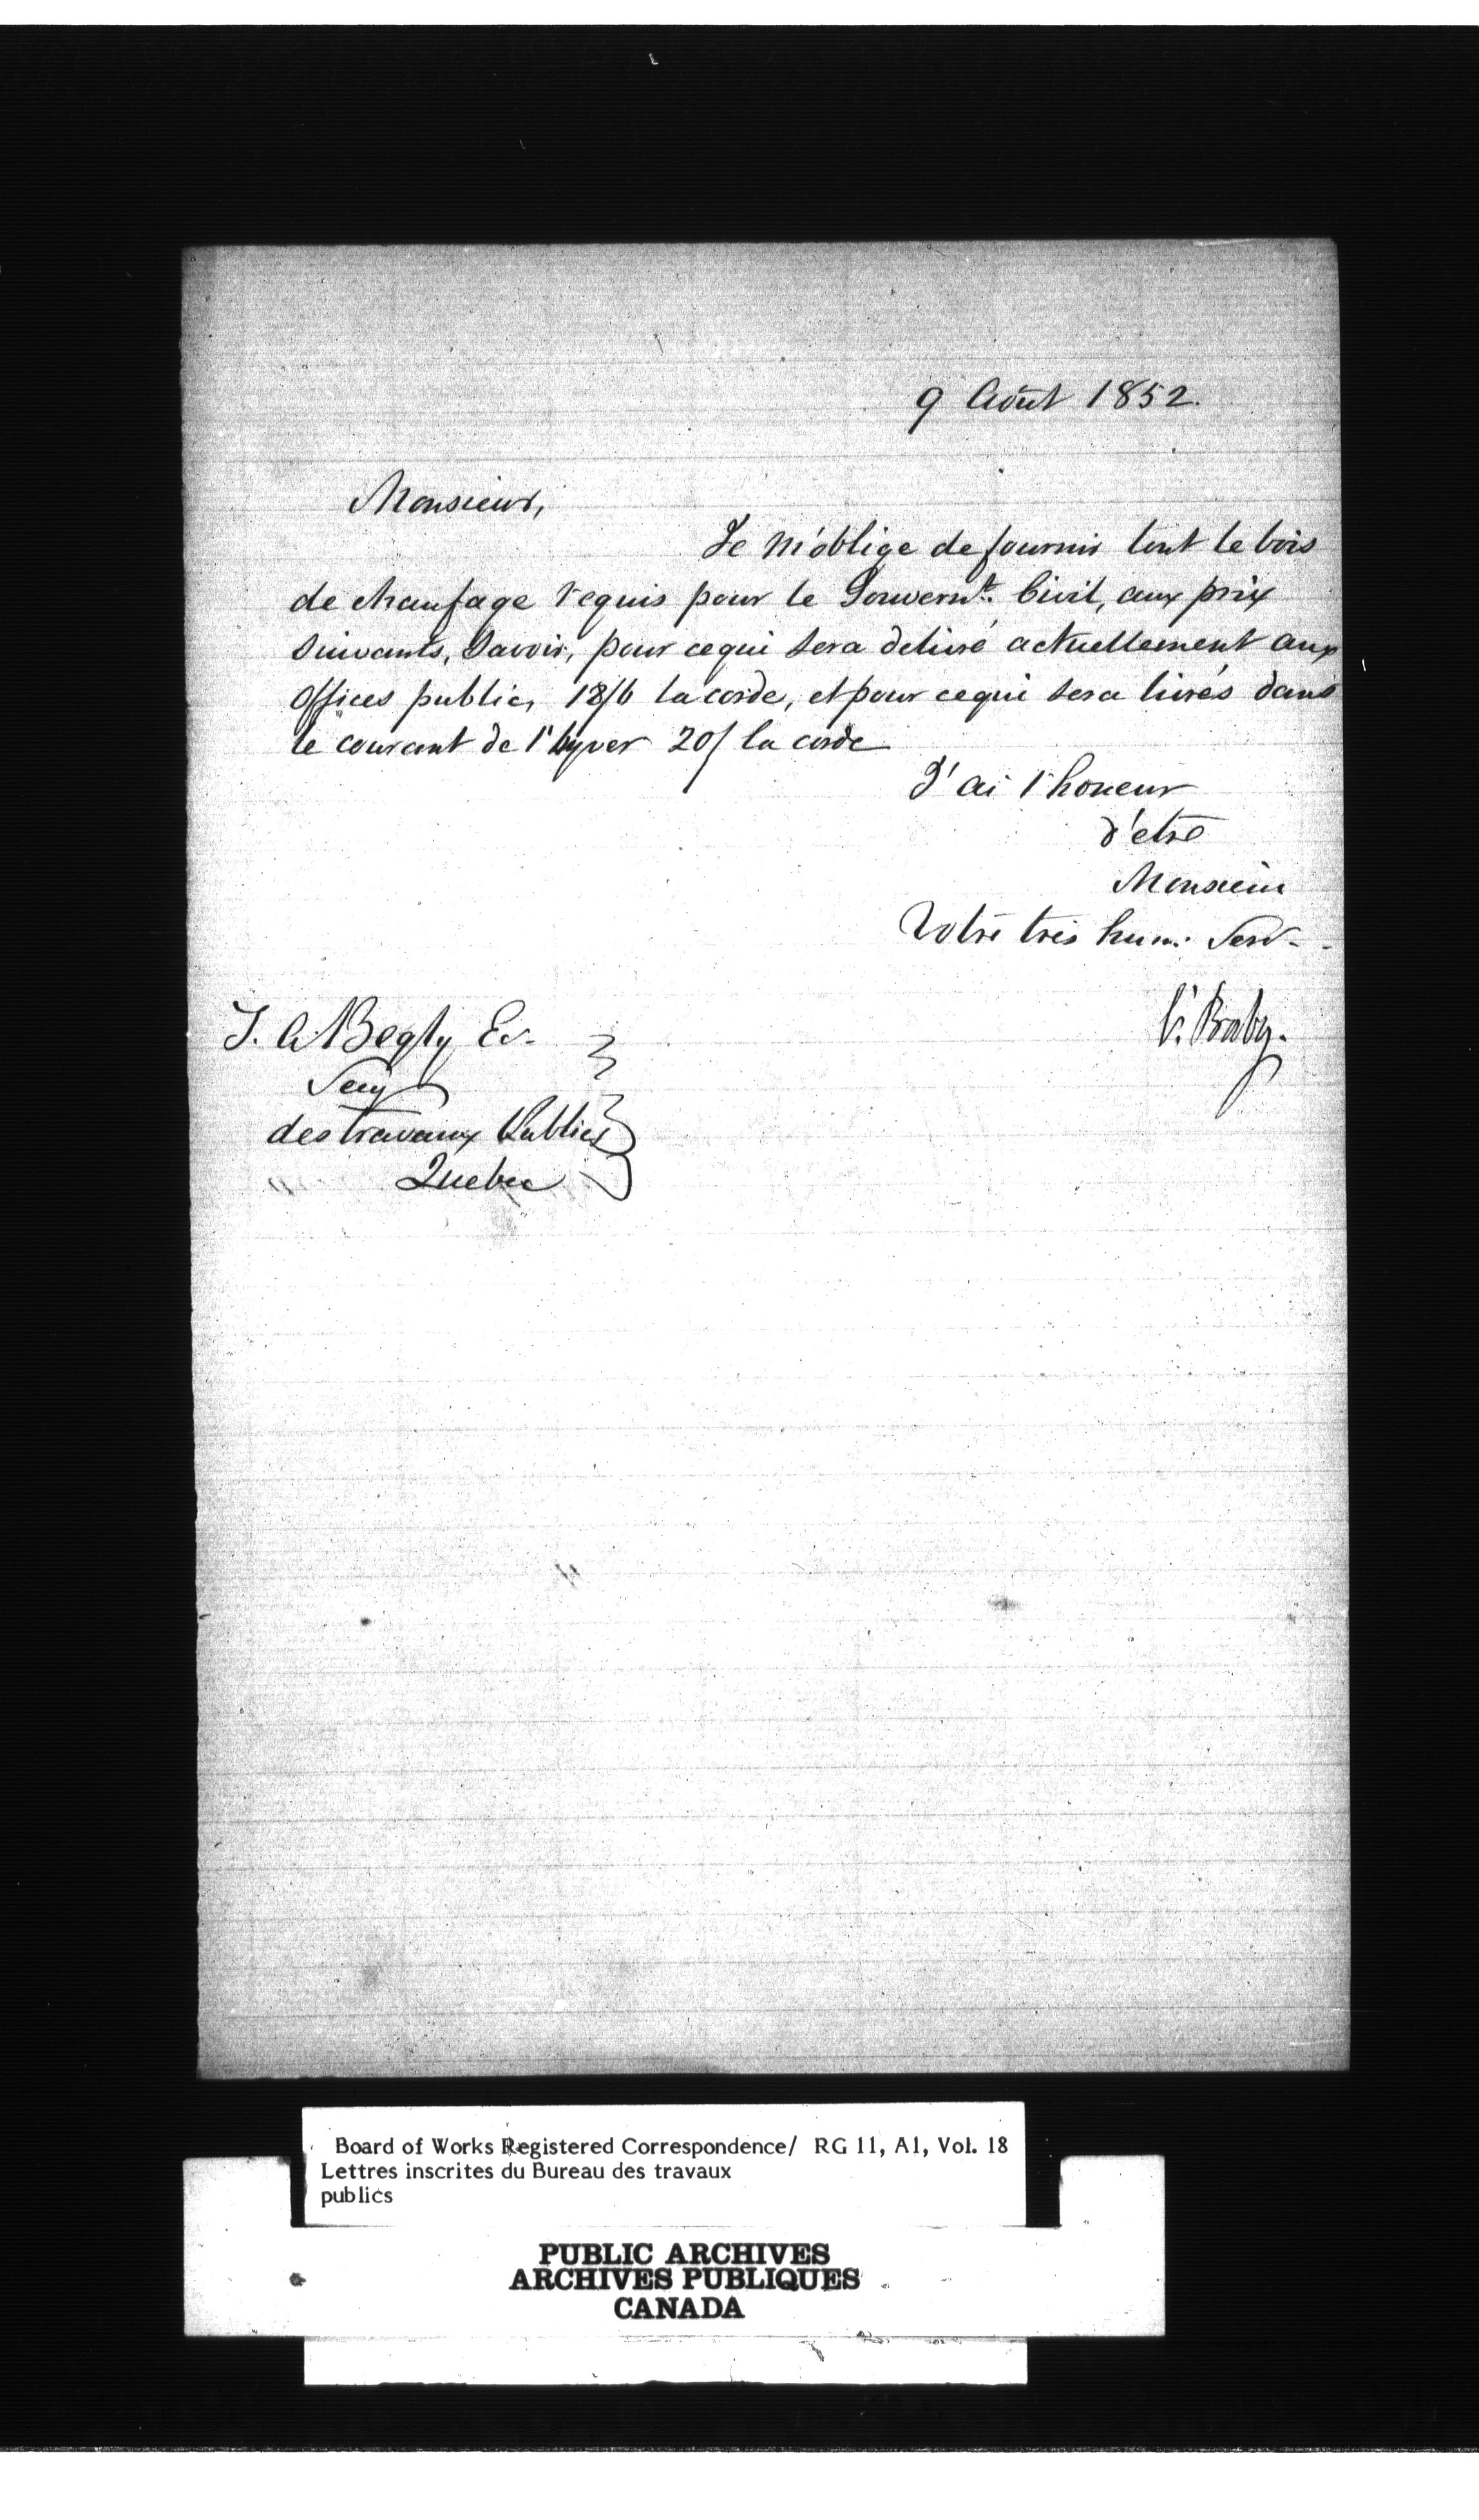 9 Août 1852.
Monsieur,
Je m'oblige de fournir tout le bois
de chaufage requis pour le Gouvernt. Civil, aux prix
suivants, Savoir, pour cequi sera delivré actuellement aux
Offices public, 18/6 la corde, et pour cequi sera livrés dans
le courant de l'hyver 20/ la corde
J'ai l'honeur
d'etre
Monsieur
Votre très hum. Serv.
C. Baby.
T. A. Begly Er.
Secy
des travaux Publics
Quebec
Board of Works Registered Correspondence/ RG 11, A1, Vol. 18
Lettres inscrites du Bureau des travaux
publics
PUBLIC ARCHIVES
ARCHIVES PUBLIQUES
CANADA